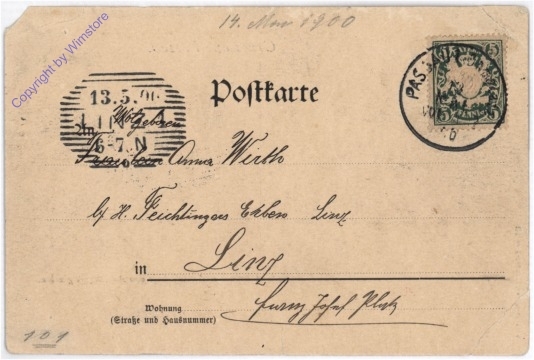 14. Mai 1900
Copyright by Wimstore
Postkarte
PASSAU
5
13.5.00
LINZ
6-7.N
An
Wolgeboren
Fräulein Anna Wirth
b/ H. Feichtingers Erben Linz
in Linz
Wohnung
(Straße und Hausnummer)
Franz Josef Platz
101